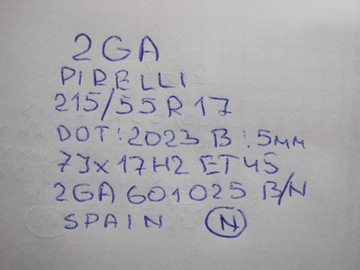 2GA
PIRELLI
215/55R17
DOT:2023 B:5мм
7Jx17H2 ET45
2GA601025 B/N
SPAIN N